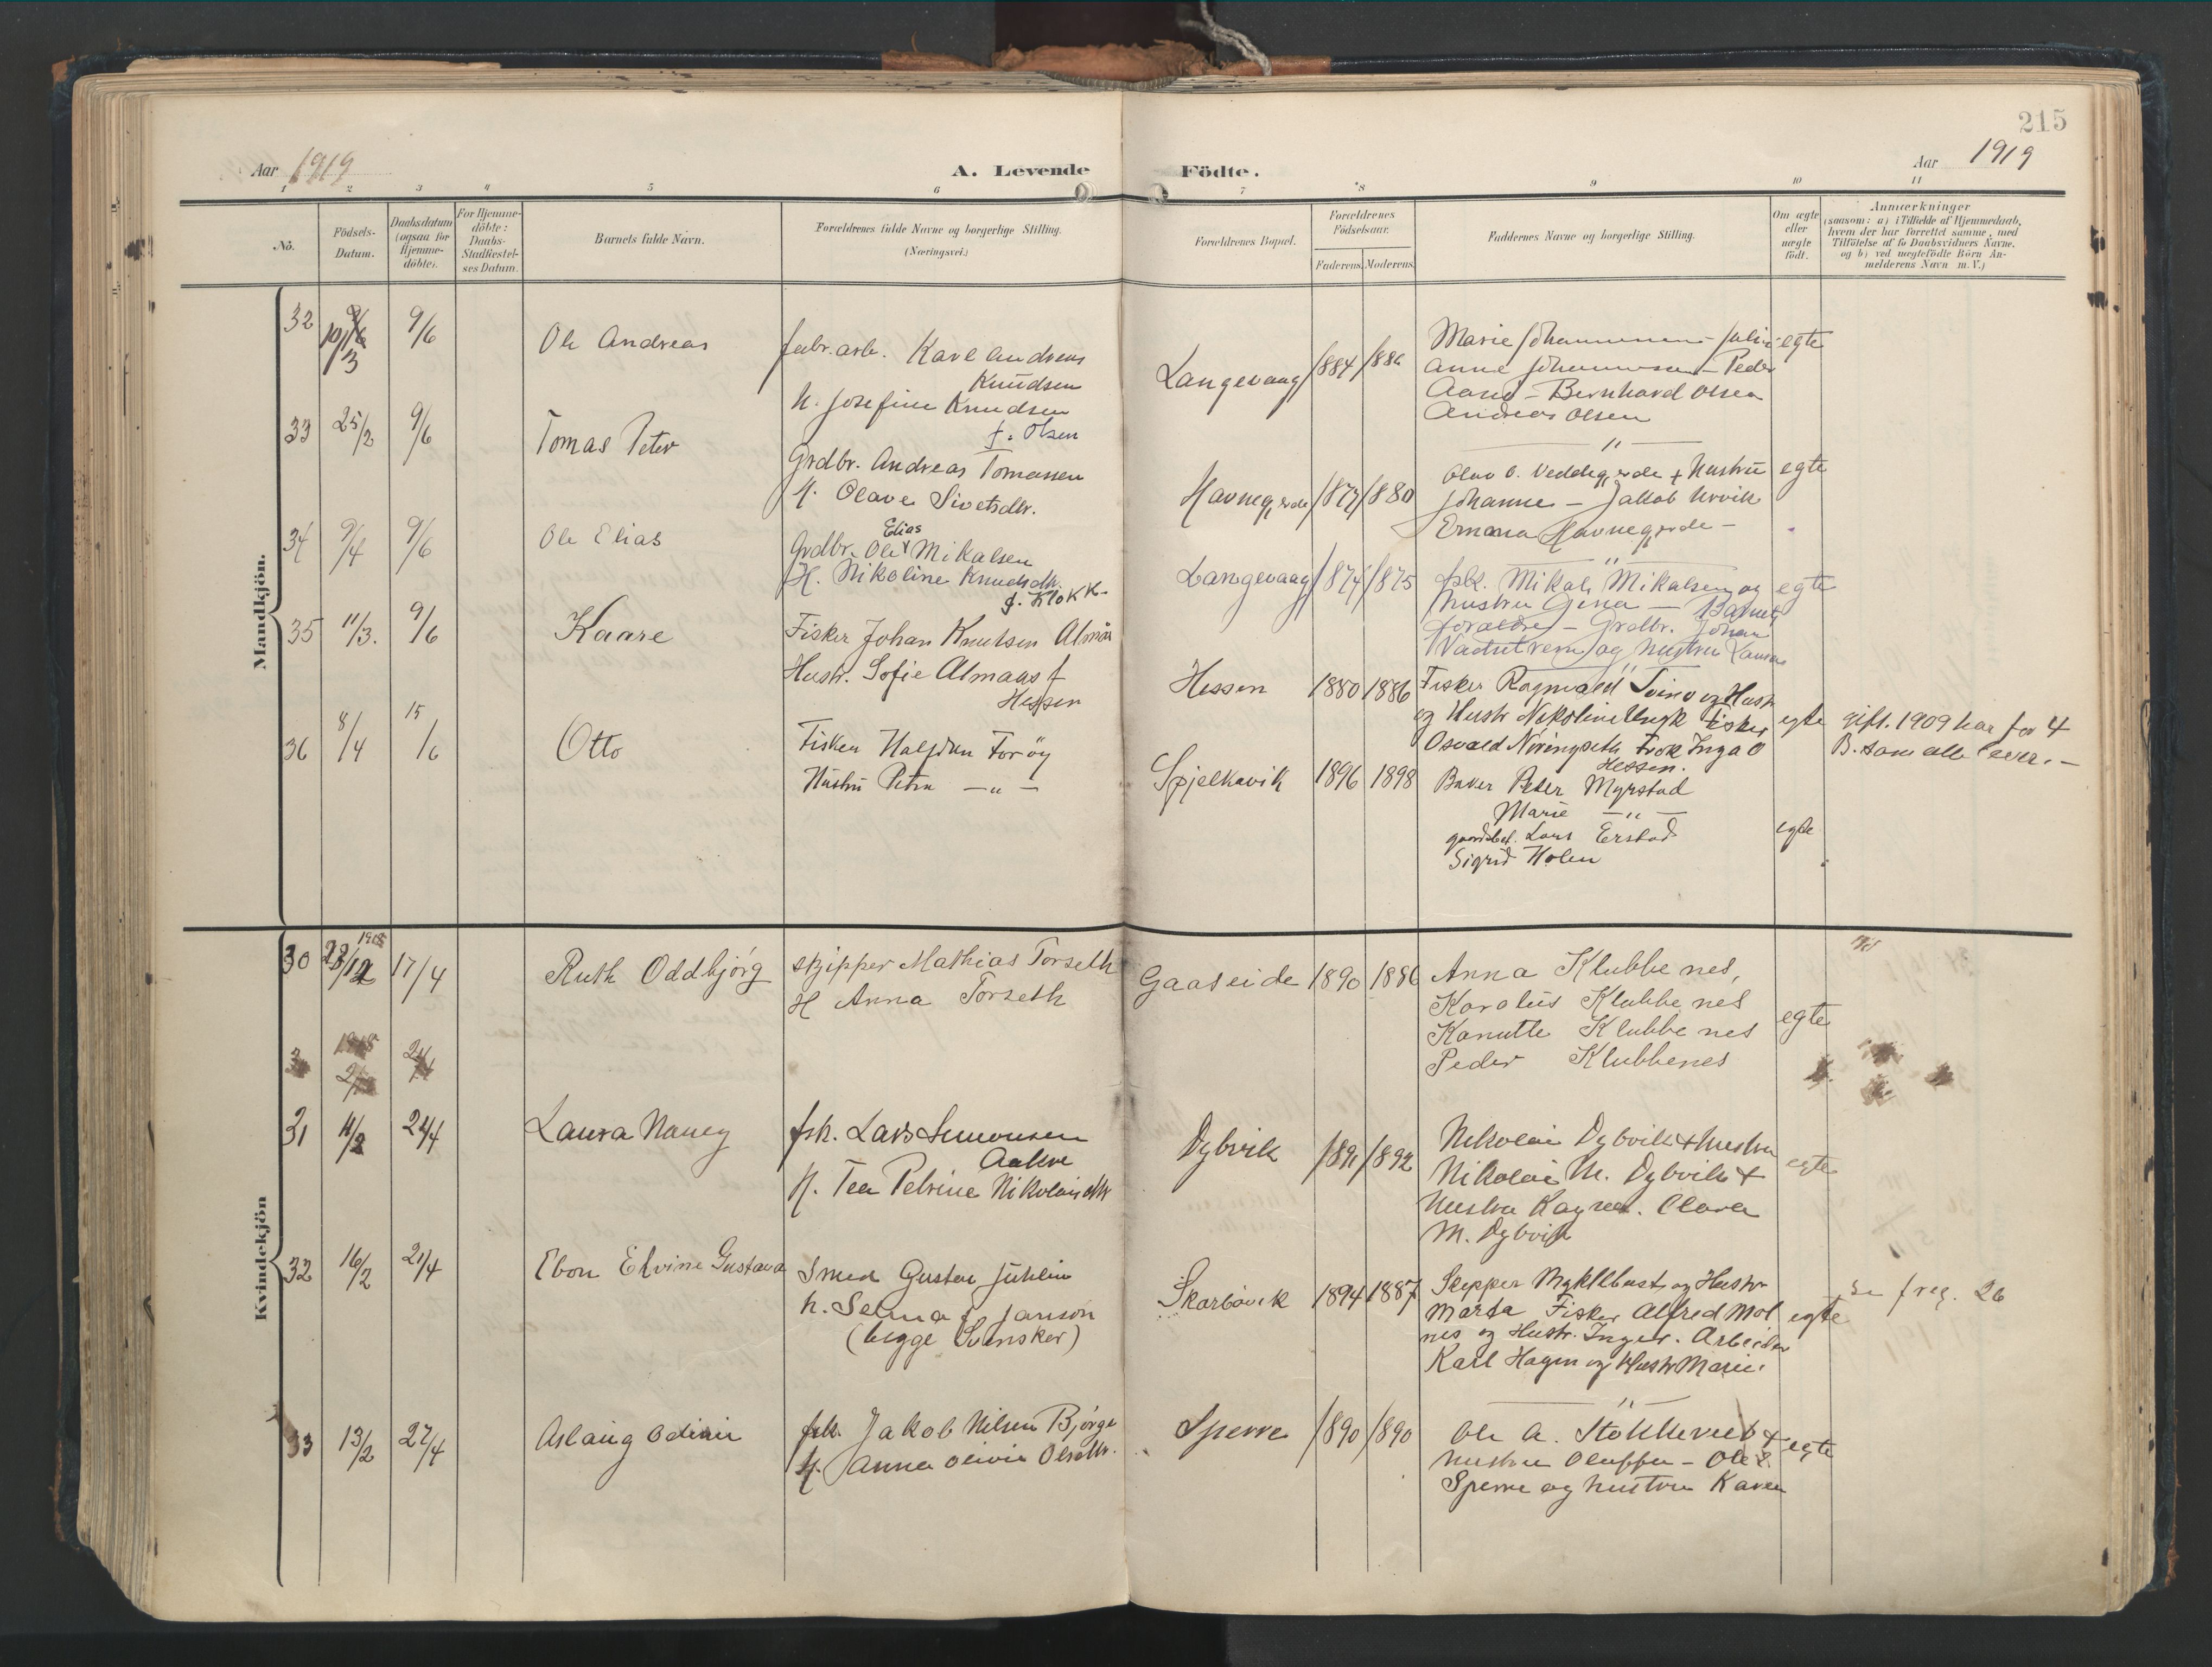 215
Aar 1919
A. Levende Födte.
Aar 1919
1 2 3 4 5 6 7 8 9 10 11
No.
Födsels-Datum.
Daabsdatum (ogsaa for Hjemme-döbte).
For Hjemme-döbte: Daabs-Stadfestel-ses Datum.
Barnets fulde Navn.
Forældrenes fulde Navne og borgerlige Stilling. (Næringsvei.)
Forældrenes Bopæl.
Forældrenes Födselsaar.
Faderens. Moderens.
Faddernes Navne og borgerlige Stilling.
Om ægte eller uægte födt.
Anmærkninger
(saasom: a) i Tilfælde af Hjemmedaab,
hvem der har forrettet samme, med
Tilföielse af to Daabsvidners Navne,
og b) ved uægtefödte Börn An-
melderens Navn m. V.)
Mandkjön.
32 9/6 Ole Andreas
fabr.arb. Karl Andreas
Knudsen
H. Josefine Knudsen
f. Olsen
Langevaag 1884
Marie Johannessen
Anne Johannessen - Peder
Aarø - Bernhard Olsen
Andreas Olsen
egte
33 25/2 9/6 Tomas Peter
Grdbr. Andreas Tomassen
H. Olave Sivertsdtr.
Havnegjerde 1877 1880
Olav O. Veddegjerde + Hustru
Johanne - Jakob Urvik
Emma Havnegjerde -
egte
34 9/4 9/6 Ole Elias
Elias
Grdbr. Ole Mikalsen
H. Nikoline Knudsdtr.
f. Klokk-
Langevaag 1874 1875
fsk. Mikal Mikalsen og
hustru Gina - Barnets
foraldre - Grdbr. Johan
Vadstrem og hustru Laura
egte
35 11/3. 9/6 Kaare
Fisker Johan Knutsen Almås
Hustr. Sofie Almaas f
Hessen
Hessen 1880 1886
Fisker Ragnvald Sving og Hustr
og Hustr Nikoline Fisker
Osvald Nøringseth Frøk Inga O
Hessen.
egte
gift. 1909 har før 4
B. som alle lever. -
36 8/4 15/6 Otto
Fisker Halfdan Forøy
Hustru Petra - " -
Spjelkavik 1896 1898
Baker Peder Myrstad
Marie - " -
gaardsbes. Lars Erstad
Sigrid Holen
egte
Kvindekjön
30 17/4 Ruth Oddbjørg
skipper Mathias Torseth
H Anna Torseth
Gaaseide 1890 1886
Anna Klubbenes,
Karolus Klubbenes
Kanutte Klubbenes
Peder Klubbenes
egte
31 24/4 Laura Nancy
fsk. Lars Simonsen
Aakre
H. Tea Petrine Nikolaisdtr
Dybvik 1891 1892
Nikolai Dybvik + hustru
Nikolai M. Dybvik +
Hustru Clara
M. Dybvik
egte
32 16/2 21/4 Ebon Elvine Gustava
Smed Gustav Juhlin
h. Selma f. Janson
(begge Svensker)
Skarbøvik 1894 1887
Skipper Myklebust og Hustr
Marta Fisker Alfred Mol
nes og Hustr. Inger. Arbeider
Karl Hagen og Hustr Marie.
egte
Se f reg. 26
33 13/2 27/4 Aslaug Odinie
fsk. Jakob Nilsen Bjørge
H. Anna Olivia Olsdtr.
Sperre 1890 1890
Ole A. Stokkereit +
hustru Oluffa - Ole L.
Sperre og hustru Karen
egte